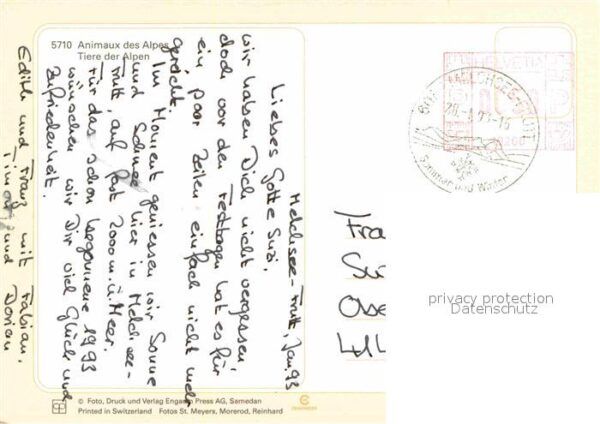 5710 Animaux des Alpes
Tiere der Alpen
Melchsee-Frutt, Jan. 93
Liebes Gotte Susi,
wir haben Dich nicht vergessen,
doch vor den Festtagen hat es für
ein paar Zeilen einfach nicht mehr
gereicht.
Im Moment geniessen wir Sonne
und Schnee hier in Melchsee-
Frutt, auf fast 2000 m.ü.Meer.
Für das schon begonnene 1993
wünschen wir Dir viel Glück und
Zufriedenheit.
Edith und Franz mit Fabian,
und Dorian
HELVETIA
Sommer und Winter
privacy protection
Datenschutz
© Foto, Druck und Verlag Engadin Press AG, Samedan
Printed in Switzerland Fotos St. Meyers, Morerod, Reinhard